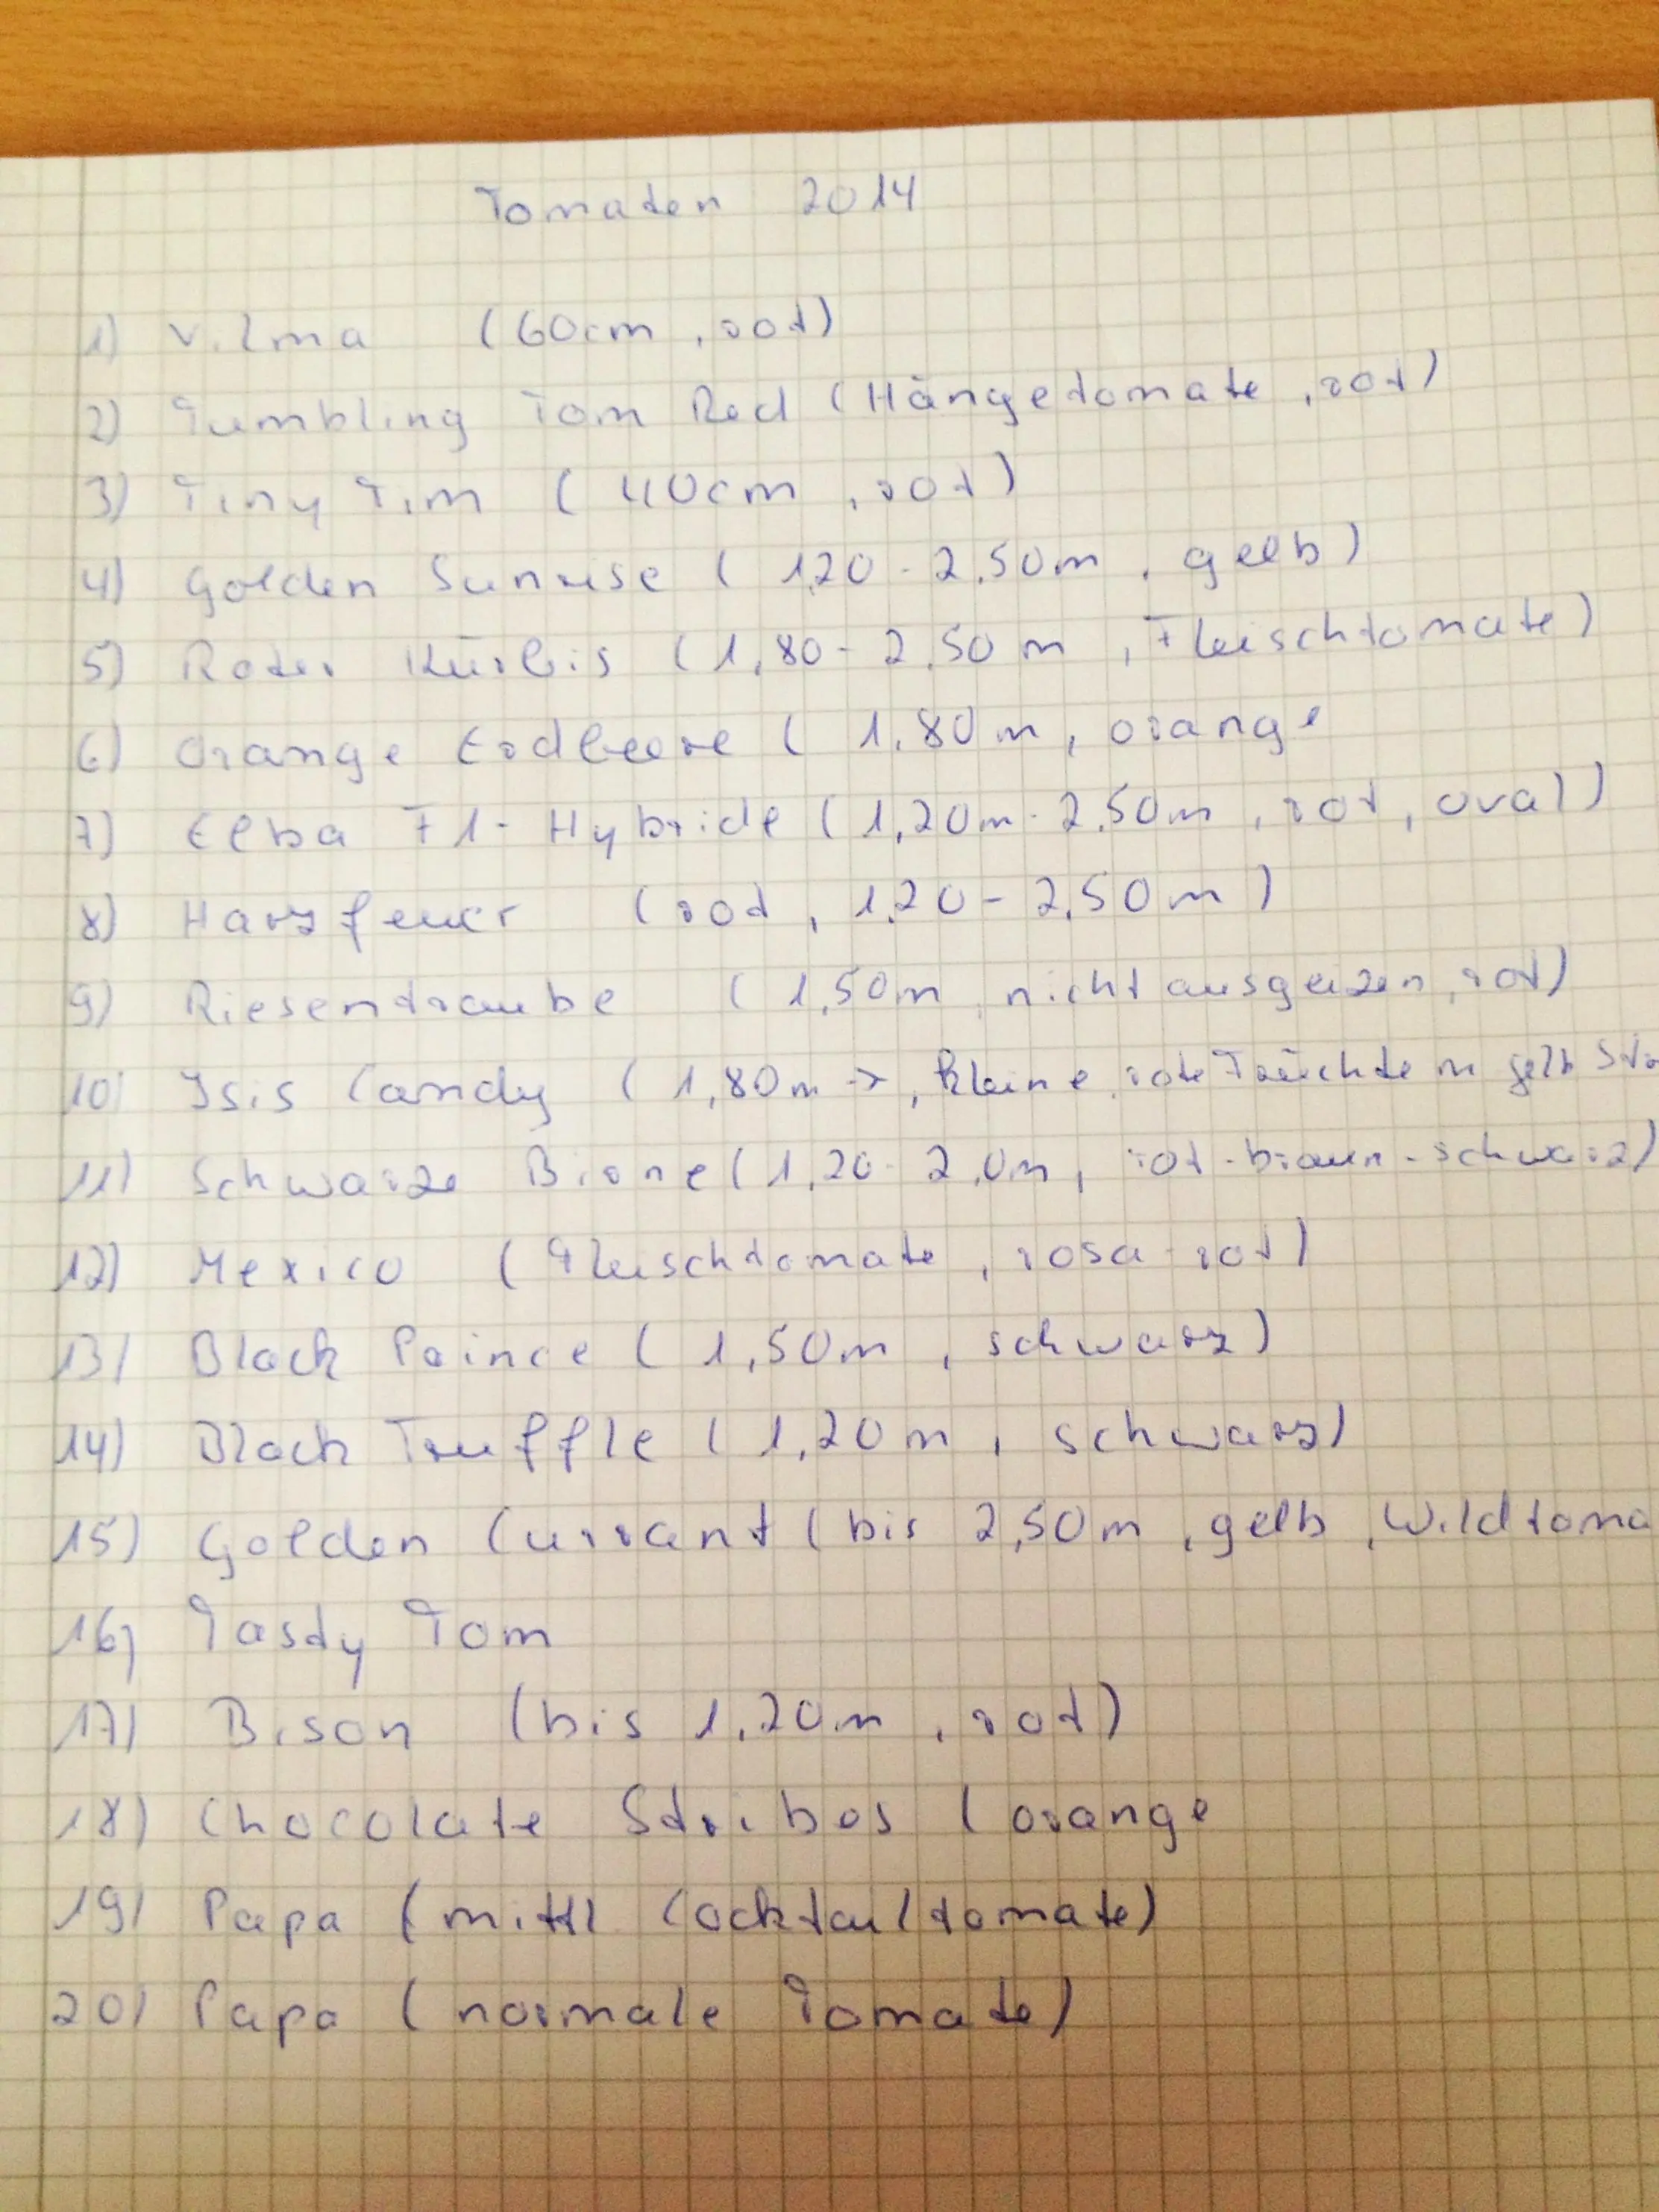 Tomaten 2014
1) Vilma (60cm, rot)
2) Tumbling Tom Red (Hängetomate, rot)
3) Tiny Tim (40cm, rot)
4) Golden Sunrise (1,20 - 2,50m, gelb)
5) Roter Kürbis (1,80 - 2,50m, Fleischtomate)
6) Orange Erdbeere (1,80m, orange
7) Elba F1-Hybride (1,20m - 2,50m, rot, oval)
8) Harzfeuer (rot, 1,20 - 2,50m)
9) Riesentraube (1,50m, nicht ausgeizen, rot)
10) Isis Candy (1,80m →, kleine rote Früchte m gelb
11) Schwarze Birne (1,20 - 2,0m, rot-braun-schwarz)
12) Mexico (Fleischtomate, rosa-rot)
13) Black Prince (1,50m, schwarz)
14) Black Truffle (1,20m, schwarz)
15) Golden Currant (bis 2,50m, gelb, Wildtoma
16) Tasty Tom
17) Bison (bis 1,20m, rot)
18) Chocolate Stribes (orange
19) Papa (mittl Cocktailtomate)
20) Papa (normale Tomate)